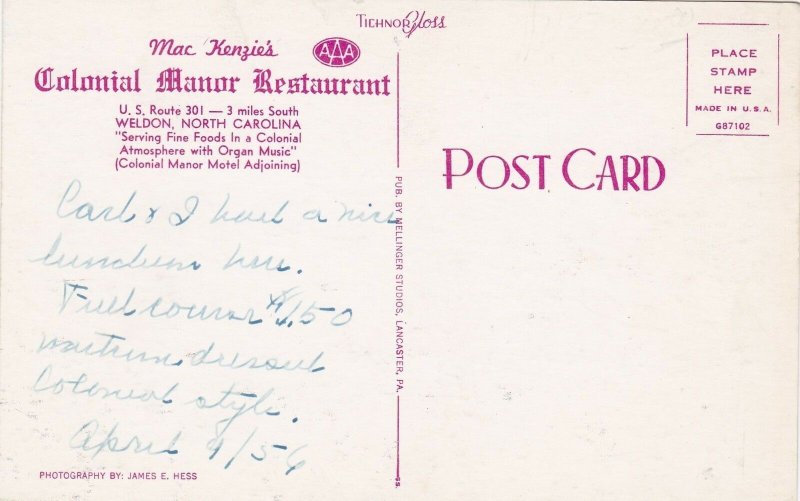 TICHNOR Gloss
Mac Kenzie's
AAA
Colonial Manor Restaurant
U. S. Route 301 — 3 miles South
WELDON, NORTH CAROLINA
"Serving Fine Foods In a Colonial
Atmosphere with Organ Music"
(Colonial Manor Motel Adjoining)
Carl & I had a nice
luncheon here.
Full course $1.50
waitress dressed
Colonial style.
April 9/56
PHOTOGRAPHY BY: JAMES E. HESS
PUB. BY MELLINGER STUDIOS, LANCASTER, PA.
PLACE
STAMP
HERE
MADE IN U.S.A.
G87102
POST CARD